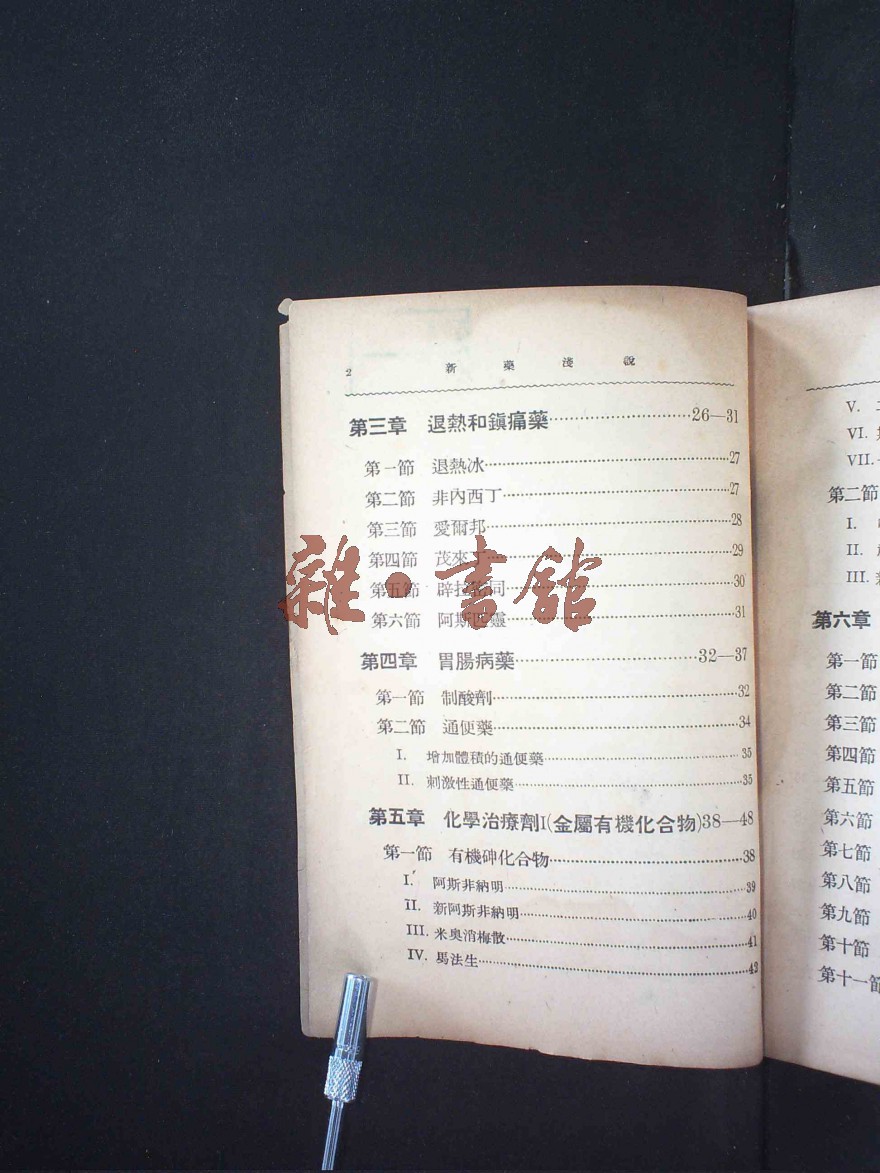 2 新藥淺說
第三章 退熱和鎭痛藥……26—31
第一節 退熱冰……27
第二節 非內西丁……27
第三節 愛爾邦……28
第四節 茂來丁……29
第五節 辟拉 同……30
第六節 阿斯匹靈……31
第四章 胃腸病藥……32—37
第一節 制酸劑……32
第二節 通便藥……34
I. 增加體積的通便藥……35
II. 刺激性通便藥……35
第五章 化學治療劑I(金屬有機化合物)38—48
第一節 有機砷化合物……38
I. 阿斯非納明……39
II. 新阿斯非納明……40
III. 米奧消梅散……41
IV. 馬法生……42
雜·書館
V.
VI.
VII.
第二節
I.
II.
III.
第六章
第一節
第二節
第三節
第四節
第五節
第六節
第七節
第八節
第九節
第十節
第十一節